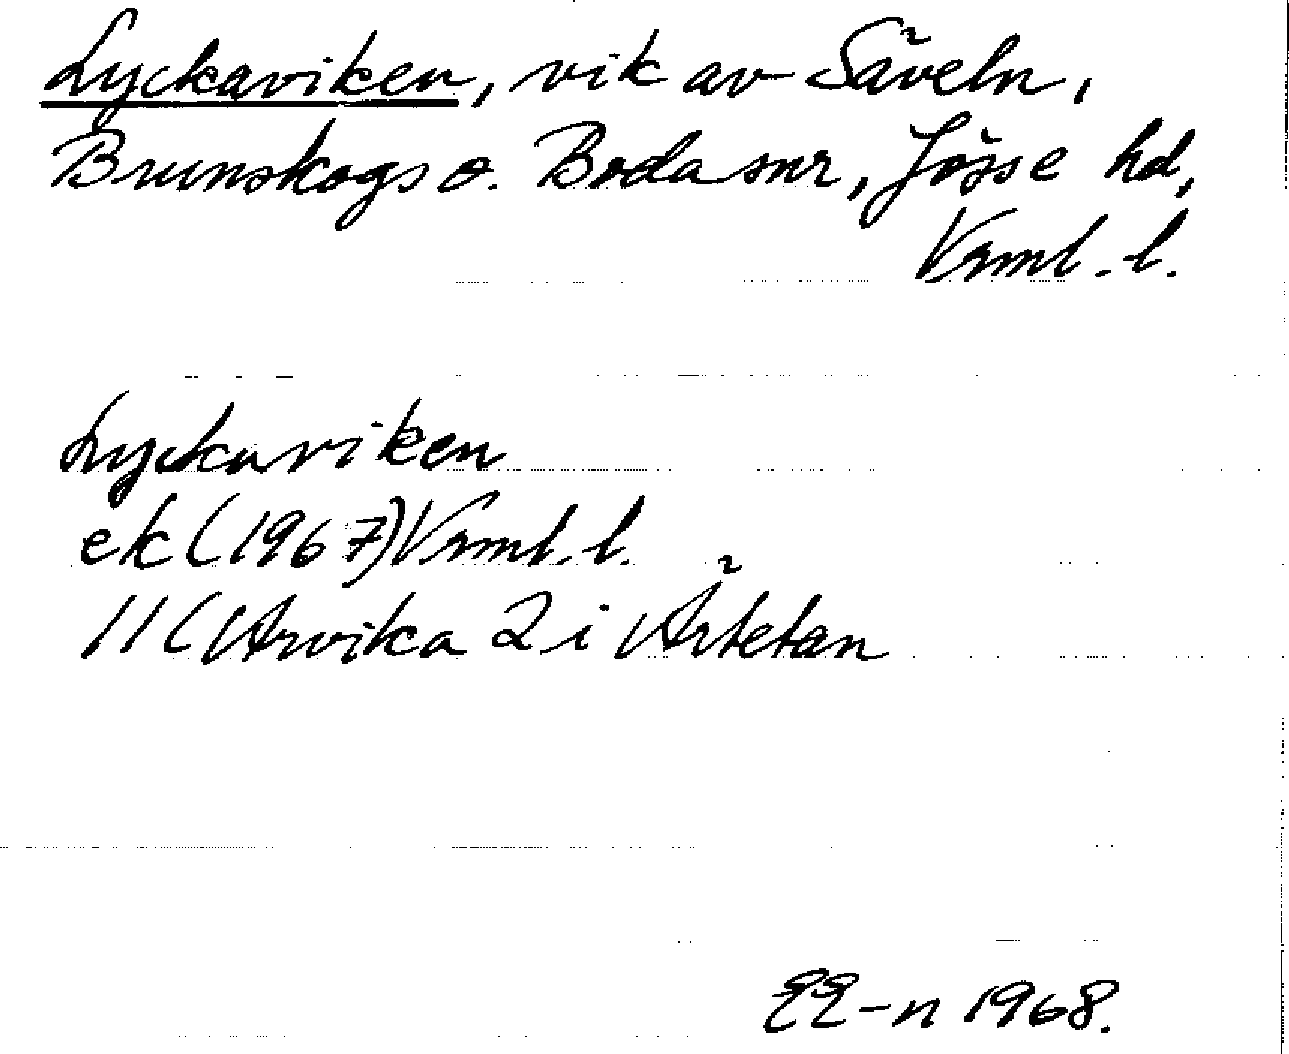 Lyckaviken, vik av Säveln,
Brunskogs o. Boda snr, Jösse hd,
Vrml. l.
Lyckaviken
ek (1967) Vrml. l.
11C Arvika 2 i Ärtetan
EE-n 1968.